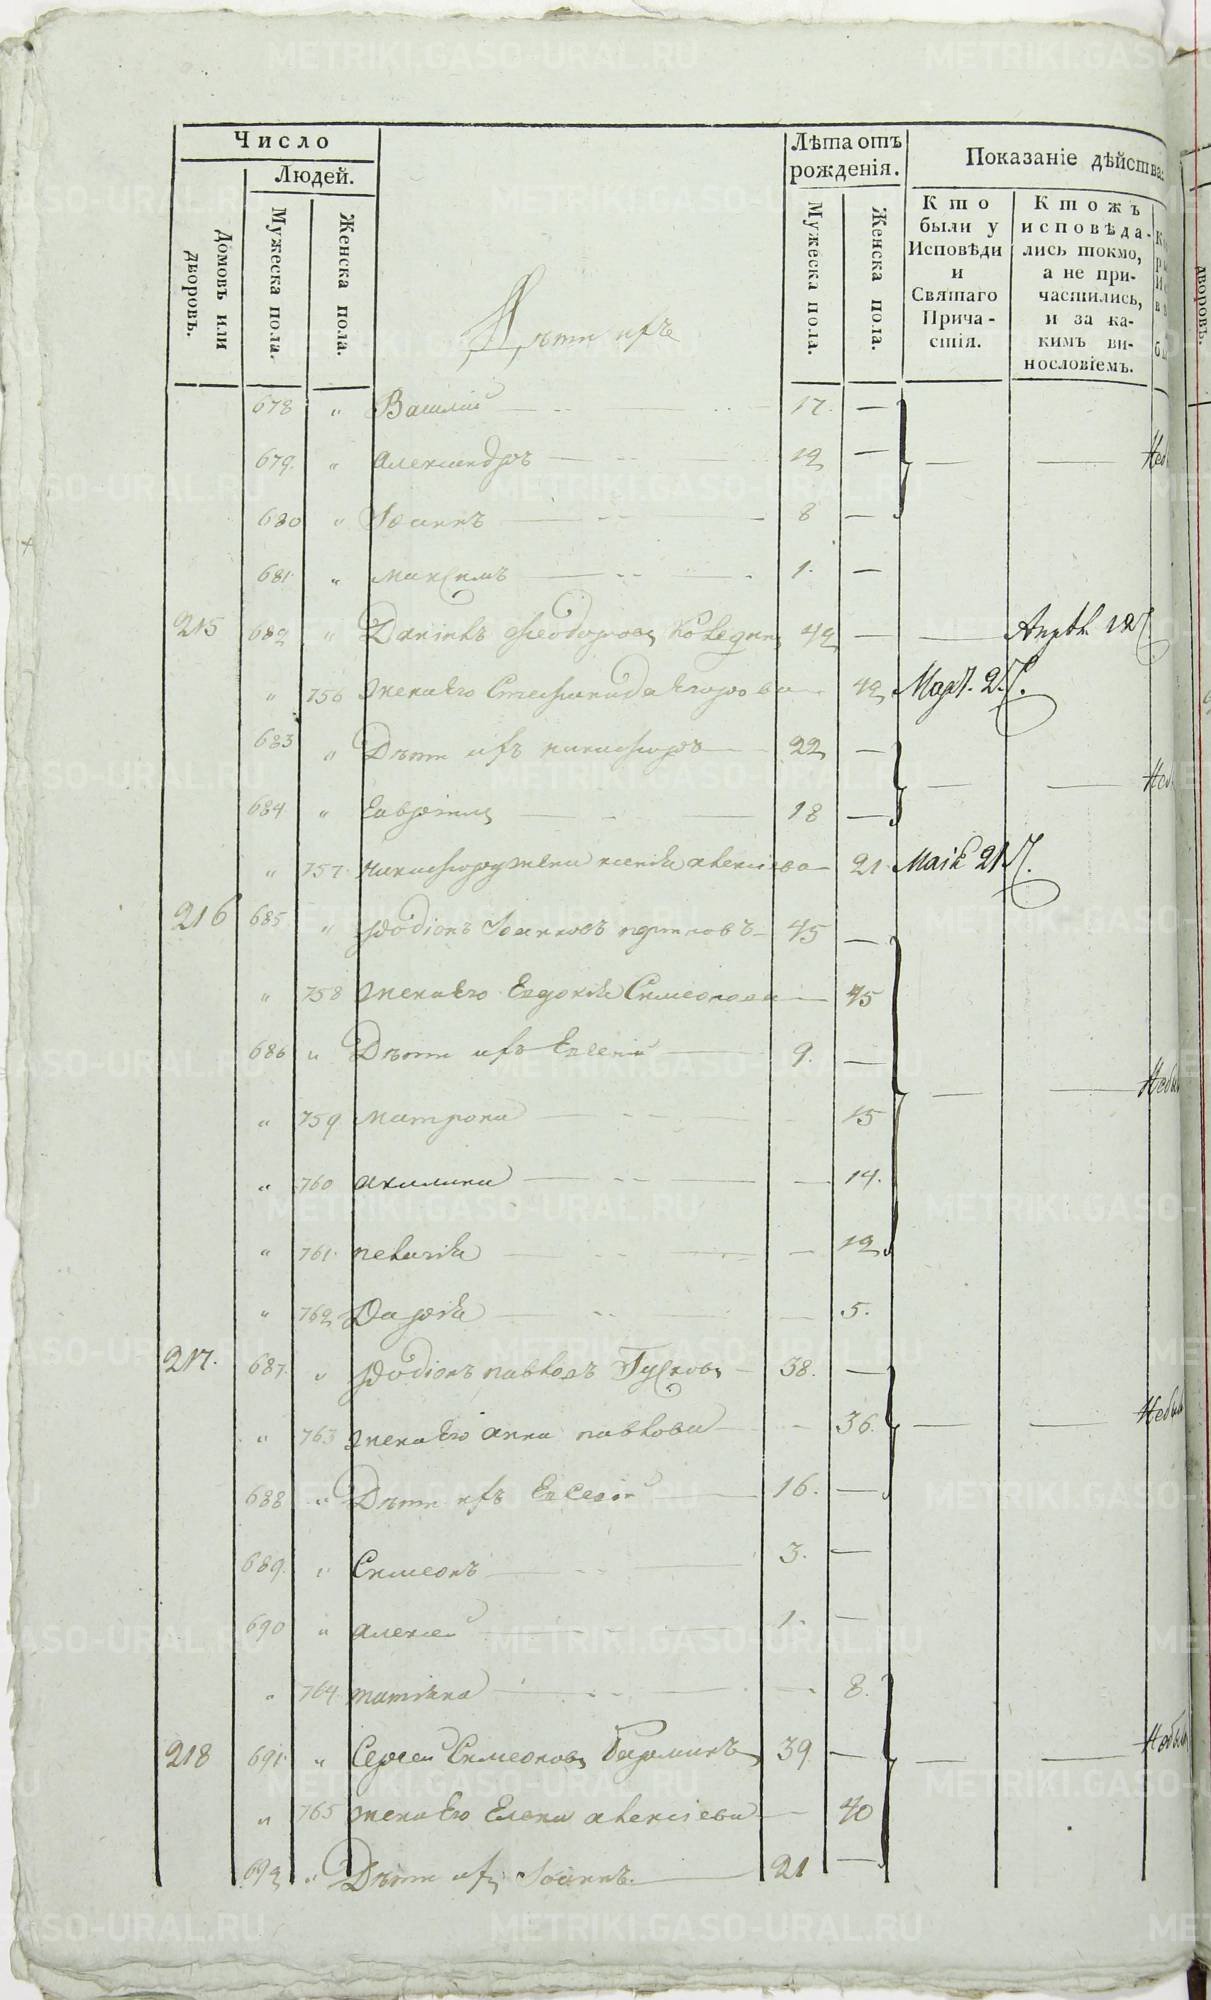 Число
Людей.
Домовъ или дворовъ.
Мужеска пола.
Женска пола.
Лѣта отъ рожденія.
Мужеска пола.
Женска пола.
Показаніе дѣйства
Кто были у Исповѣди и Святаго Причастія.
Ктожъ исповѣдались токмо, а не причастились, и за какимъ винословіемъ.
Дѣти ихъ
678 " Василий 17. —
679. " александръ 12 — Неб
680 " Іоаннъ 8 —
681. " максимъ 1. —
215 682 " Даниилъ Феодоровъ 42 — Апрѣл 12
" 756 жена Его Стефанида Егорова 42 Март. 25.
683 " Дѣти ихъ никифоръ 22 —
684. " Гавріилъ 18 —
" 757. никифору жена ксенія алексіева 21. Маія 21
216 685 " Родіонъ Іоанновъ портновъ 45 —
" 758 жена Его Евдокія Симеонова 45
686 " Дѣти ихъ Евсеній 9. — Небыл
" 759 матрона 15
" 760 акилина 14.
" 761. пелагія 12
" 762 Дарія 5.
217. 687. " Родіонъ павловъ Гусковъ 38. —
" 763 жена Его анна павлова 36. Небыл
688 " Дѣти ихъ Евсевій 16. —
689. " Симеонъ 3. —
690 " алексей 1. —
" 764. татіана 8.
218 691. " Сергей Симеоновъ 39. — Небыл
" 765 жена Его Елена алексіева 40
692 " Дѣти ихъ Іоаннъ. 21 —
METRIKI.GASO-URAL.RU